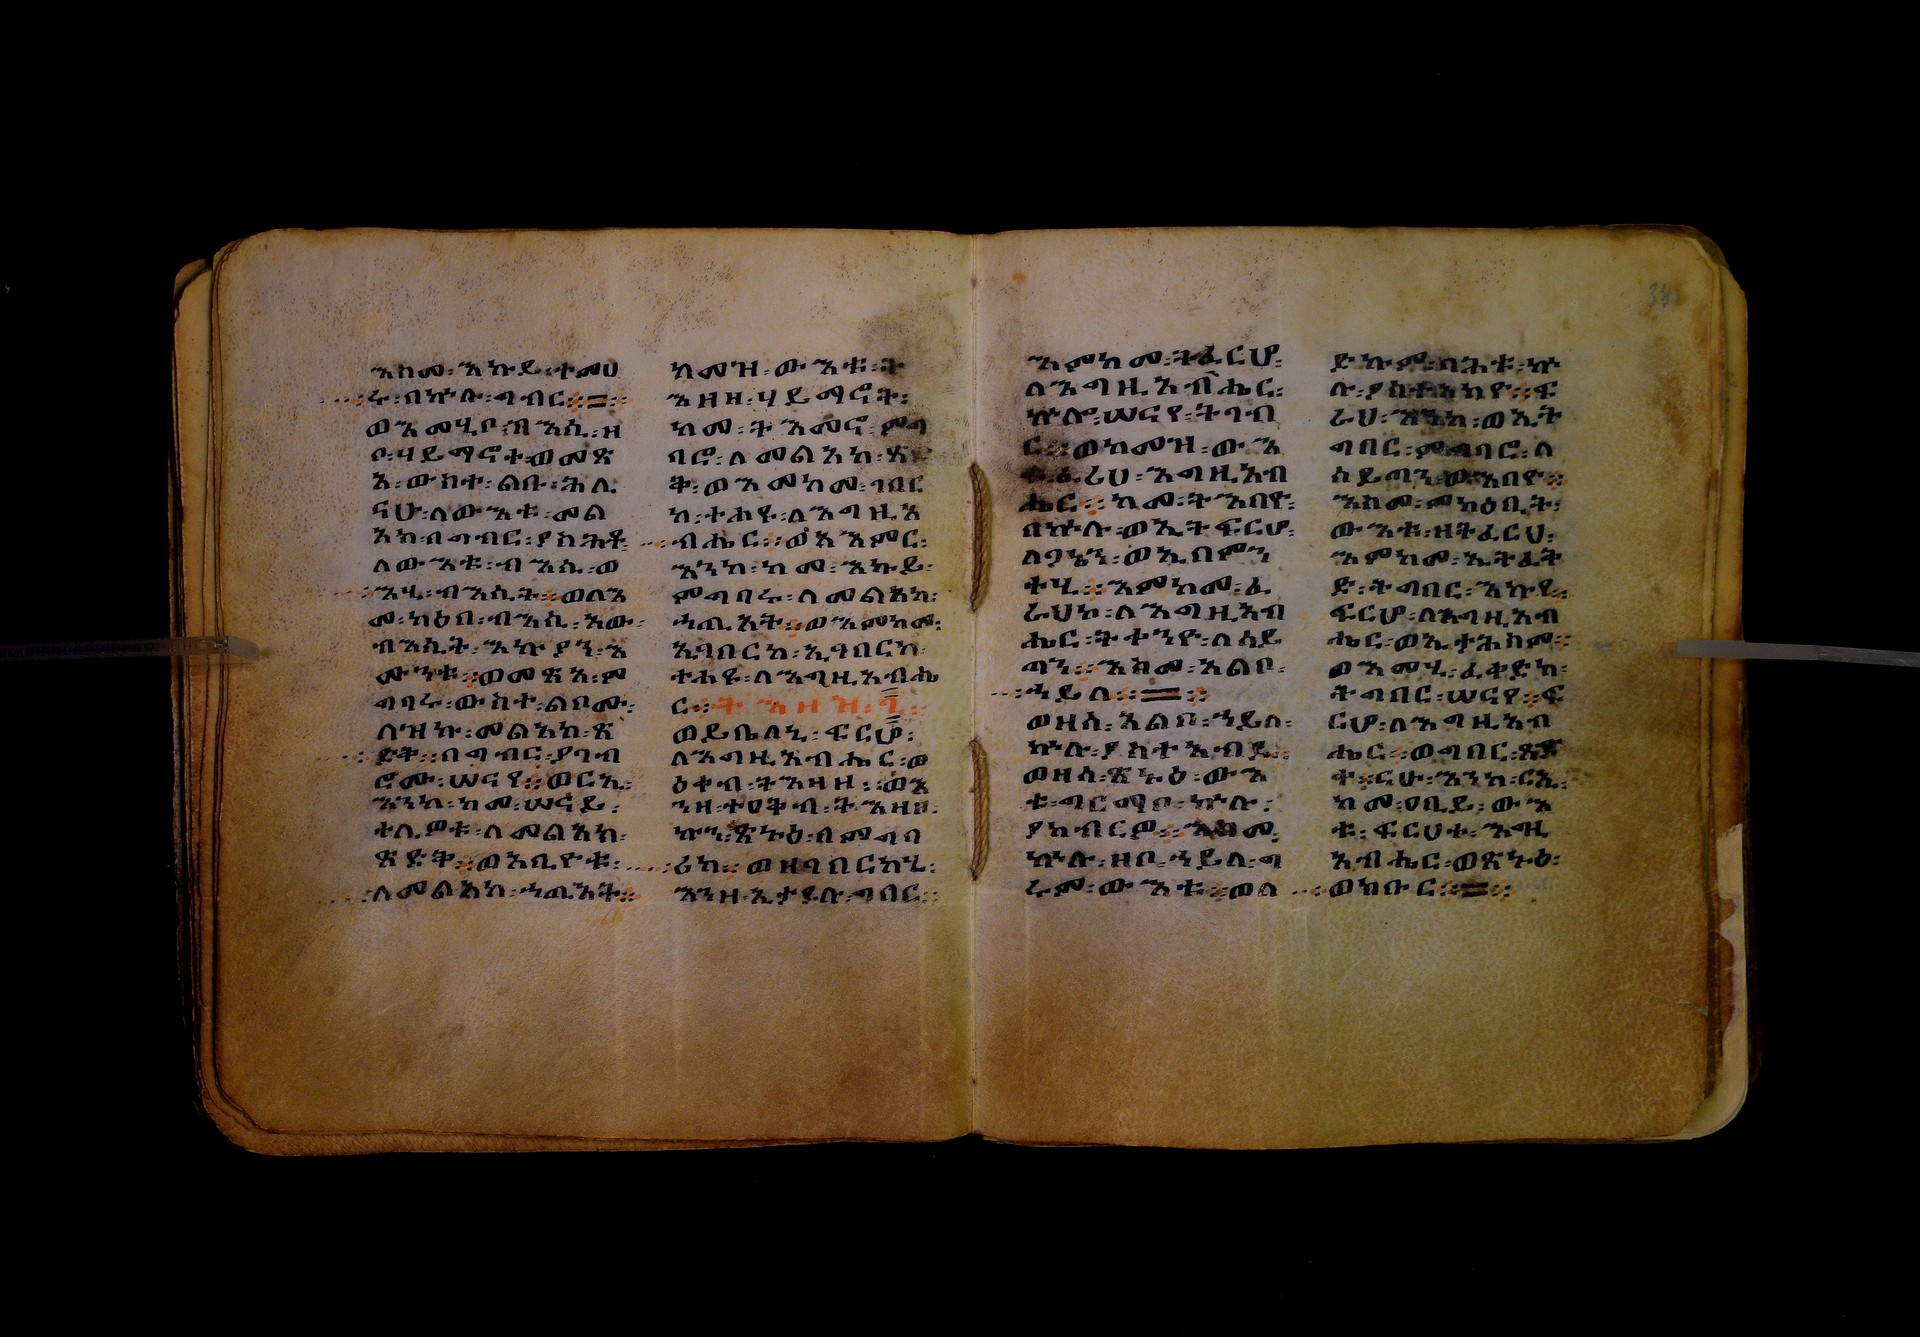 እስመ፡እኩይ፡ተመሀ
ሩ፡በኵሉ፡ግብር፡፡=፡፡
ወእመሂቦ፡ብእሲ፡ዘ
ቦ፡ሃይማኖተ፡ወመጽ
አ፡ውስተ፡ልቡ፡ሕሊ
ናሁ፡ለውእቱ፡መል
አክ፡በግብር፡ያስሕቶ፡
ለውእቱ፡ብእሲ፡ወ
እሂ፡ብእሲት፡፡ወለእ
መ፡ክዕበ፡ብእሲ፡አው፡
ብእሲት፡እኩያን፡እ
ሙንቱ፡፡ወመጽአ፡ም
ግባሩ፡ውስተ፡ልቦሙ፡
ለዝኩ፡መልአከ፡ጽ
ድቅ፡፡በግብር፡ያገብ
ሮሙ፡ሠናየ፡፡ወርኢ፡
እንከ፡ከመ፡ሠናይ፡
ተሊዎቱ፡ለመልአከ፡
ጽድቅ፡፡ወአቢዮቱ፡
ለመልአከ፡ኀጢአት፡፡
ከመዝ፡ውእቱ፡ት
እዛዘ፡ሃይማኖት፡
ከመ፡ትእመኖ፡ምግ
ባሮ፡ለመልአከ፡ጽድ
ቅ፡ወእመከመ፡ገበር
ከ፡ተሐዩ፡ለእግዚአ
ብሔር፡፡ወአእምር፡
እንከ፡ከመ፡እኩይ፡
ምግባሩ፡ለመልአከ፡
ኀጢአት፡፡ወእምከመ፡
ኢገበርከ፡ኢገበርከ፡
ተሐዩ፡ለእግዚአብሔ
ር፡፡ትእዛዝ፡፯፡
ወይቤለኒ፡ፍርሆ፡
ለእግዚአብሔር፡ወ
ዕቀብ፡ትእዛዘ፡፡ወእ
ንዘ፡ተዐቅብ፡ትእዛዘ፡
ኵን፡ጽኑዕ፡በመግባ
ሪከ፡፡ወዘገበርከኒ፡
እንዘ፡ግበር፡
እምከመ፡ትፈርሆ፡
ለእግዚአብሔር፡
ኵሎ፡ሠናየ፡ትገብ
ር፡፡ወከመዝ፡ውእ
ቱ፡ፈሪሀ፡እግዚአብ
ሔር፡፡ከመ፡ትእበየ፡
በኵሉ፡ወኢትፍርሆ፡
ለጋኔን፡ወኢበምን
ተሂ፡፡እምከመ፡ፈ
ራህከ፡ለእግዚአብ
ሔር፡ትቀንዮ፡ለሰይ
ጣን፡፡እስመ፡አልቦ፡
ኀይለ፡፡=፡፡
ወዘሰ፡አልቦ፡ኀይለ፡
ኵሉ፡ያስተአብዶ፡፡
ወዘሰ፡ጽኑዕ፡ውእ
ቱ፡ግርማቦ፡ኵሉ፡
ያከብርዎ፡፡እስመ፡
ኵሉ፡ዘቦ፡ኀይለ፡ግ
ሩም፡ውእቱ፡፡ወለ
ድኩም፡በሕቱ፡ኵ
ሉ፡ያስተአክዮ፡፡ፍ
ራህ፡እንከ፡ወኢት
ግበር፡ምግባሮ፡ለ
ሰይጣን፡ወአብዮ፡፡
እስመ፡መክዕቢት፡
ውእቱ፡ዘትፈርህ፡
እምከመ፡ኢትፈት
ድ፡ትግበር፡እኩየ፡፡
ፍርሆ፡ለእግዚአብ
ሔር፡ወኢተሕስም፡፡
ወእመሂ፡ፈቀድከ፡
ትግበር፡ሠናየ፡፡ፍ
ርሆ፡ለእግዚአብ
ሔር፡፡ወግበር፡ጽድ
ቀ፡፡ርሁ፡እንከ፡ርኢ፡
ከመ፡ዐቢይ፡ውእ
ቱ፡ፍርሀተ፡እግዚ
አብሔር፡ወጽኑዕ፡
ወክቡር፡፡=፡፡